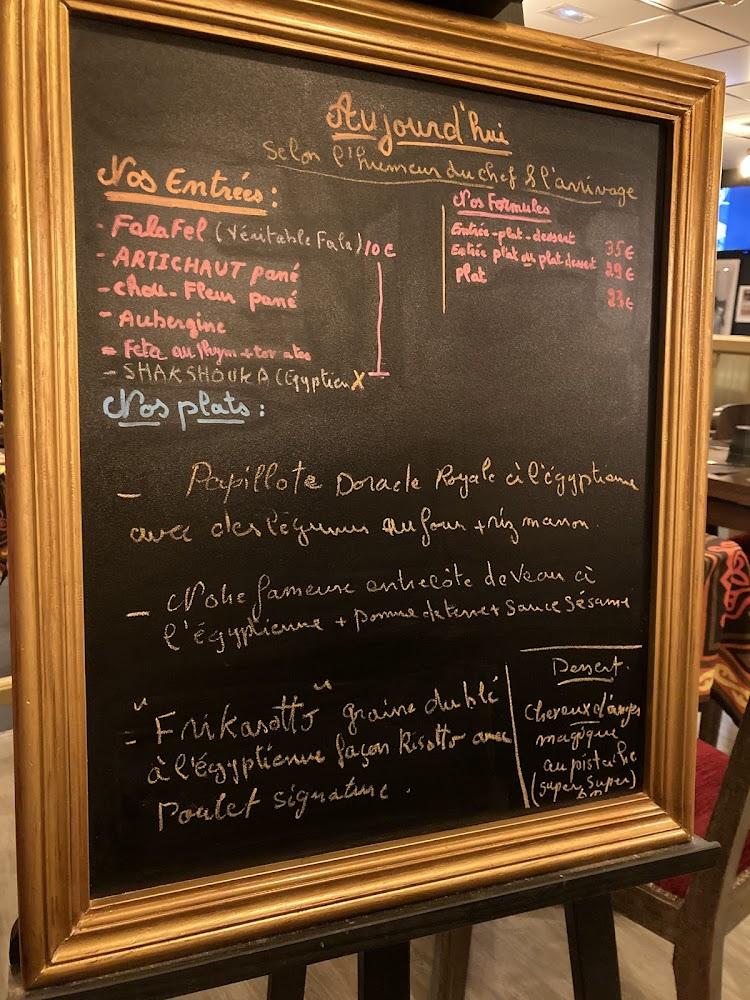 Aujourd'hui
Selon l'humeur du chef & l'arrivage
Nos Entrées :
- FalaFel (Véritable Fala) 10 €
- ARTICHAUT pané
- chou-Fleur pané
- Aubergine
- Feta au thym + tomates
- SHAKSHOUKA (Egyptien
Nos Formules
Entrée-plat-dessert 35 €
Entrée plat ou plat dessert 29 €
Plat 23 €
Nos plats :
- Papillote Dorade Royale à l'égyptienne
avec des légumes au four + riz maison.
- Notre fameuse entrecôte de Veau à
l'égyptienne + pomme de terre + sauce sésame
- "Frikasotto" graine du blé
à l'égyptienne façon Risotto avec
Poulet signature.
Dessert.
Cheveux d'anges
magique
au pistache
(super super)